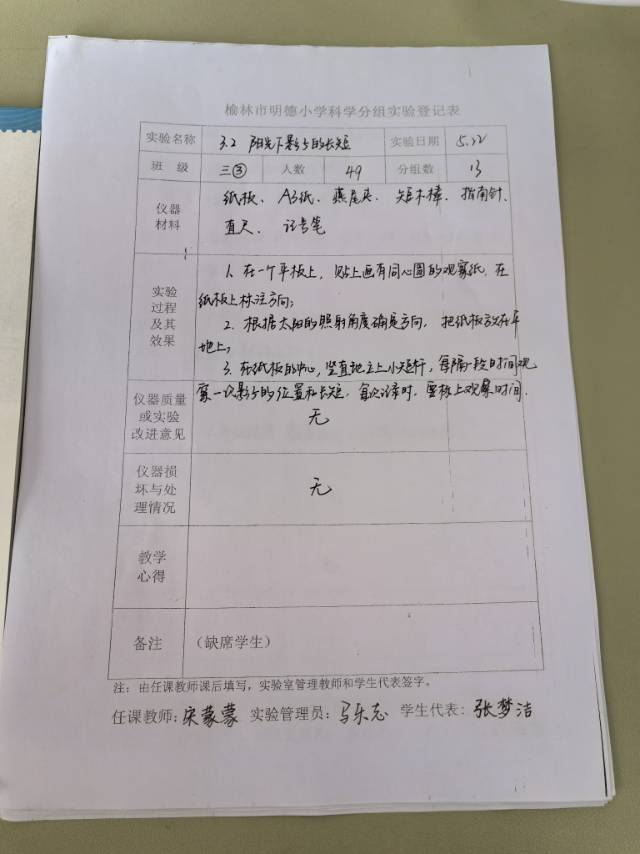 榆林市明德小学科学分组实验登记表
实验名称 3.2 阳光下影子的长短 实验日期 5.22
班 级 三③ 人数 49 分组数 13
仪器材料 纸板、A3纸、燕尾夹、短木棒、指南针、
直尺、记号笔
实验过程及其效果 1. 在一个平板上,贴上画有同心圆的观察纸,在
纸板上标注方向;
2. 根据太阳的照射角度确定方向,把纸板放在平
地上。
3. 在纸板的中心,竖直地立上小短杆,每隔一段时间观
察一次影子的位置和长短,每次记录时,要标上观察时间.
仪器质量或实验改进意见 无
仪器损坏与处理情况 无
教学心得
备注 (缺席学生)
注:由任课教师课后填写,实验室管理教师和学生代表签字。
任课教师:宋蒙蒙 实验管理员:马乐志 学生代表:张梦洁